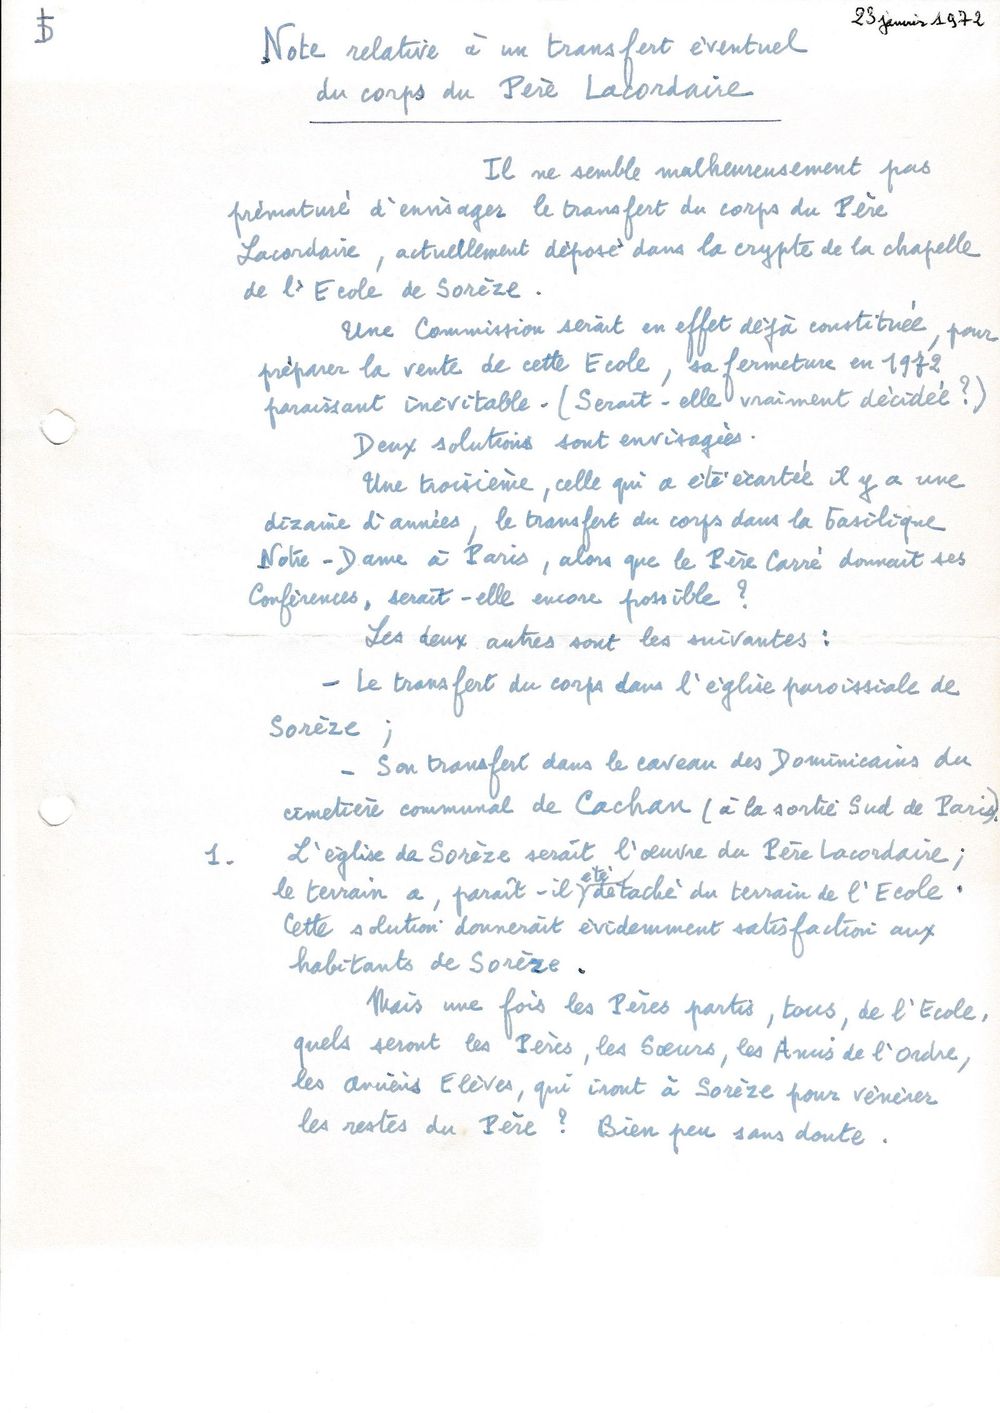 23 janvier 1972
Note relative à un transfert éventuel
du corps du Père Lacordaire
Il ne semble malheureusement pas
prématuré d'envisager le transfert du corps du Père
Lacordaire, actuellement déposé dans la crypte de la chapelle
de l'Ecole de Sorèze.
Une Commission serait en effet déjà constituée, pour
préparer la vente de cette Ecole, sa fermeture en 1972
paraissant inévitable - (Serait-elle vraiment décidée ?)
Deux solutions sont envisagées.
Une troisième, celle qui a été écartée il y a une
dizaine d'années, le transfert du corps dans la basilique
Notre-Dame à Paris, alors que le Père Carré donnait ses
Conférences, serait-elle encore possible ?
Les deux autres sont les suivantes :
- Le transfert du corps dans l'église paroissiale de
Sorèze ;
- Son transfert dans le caveau des Dominicains du
cimetière communal de Cachan (à la sortie Sud de Paris).
1. L'église de Sorèze serait l'œuvre du Père Lacordaire ;
le terrain a, paraît-il, été détaché du terrain de l'Ecole.
Cette solution donnerait évidemment satisfaction aux
habitants de Sorèze.
Mais une fois les Pères partis, tous, de l'Ecole,
quels seront les Pères, les Sœurs, les Amis de l'Ordre,
les anciens Elèves, qui iront à Sorèze pour vénérer
les restes du Père ? Bien peu sans doute.